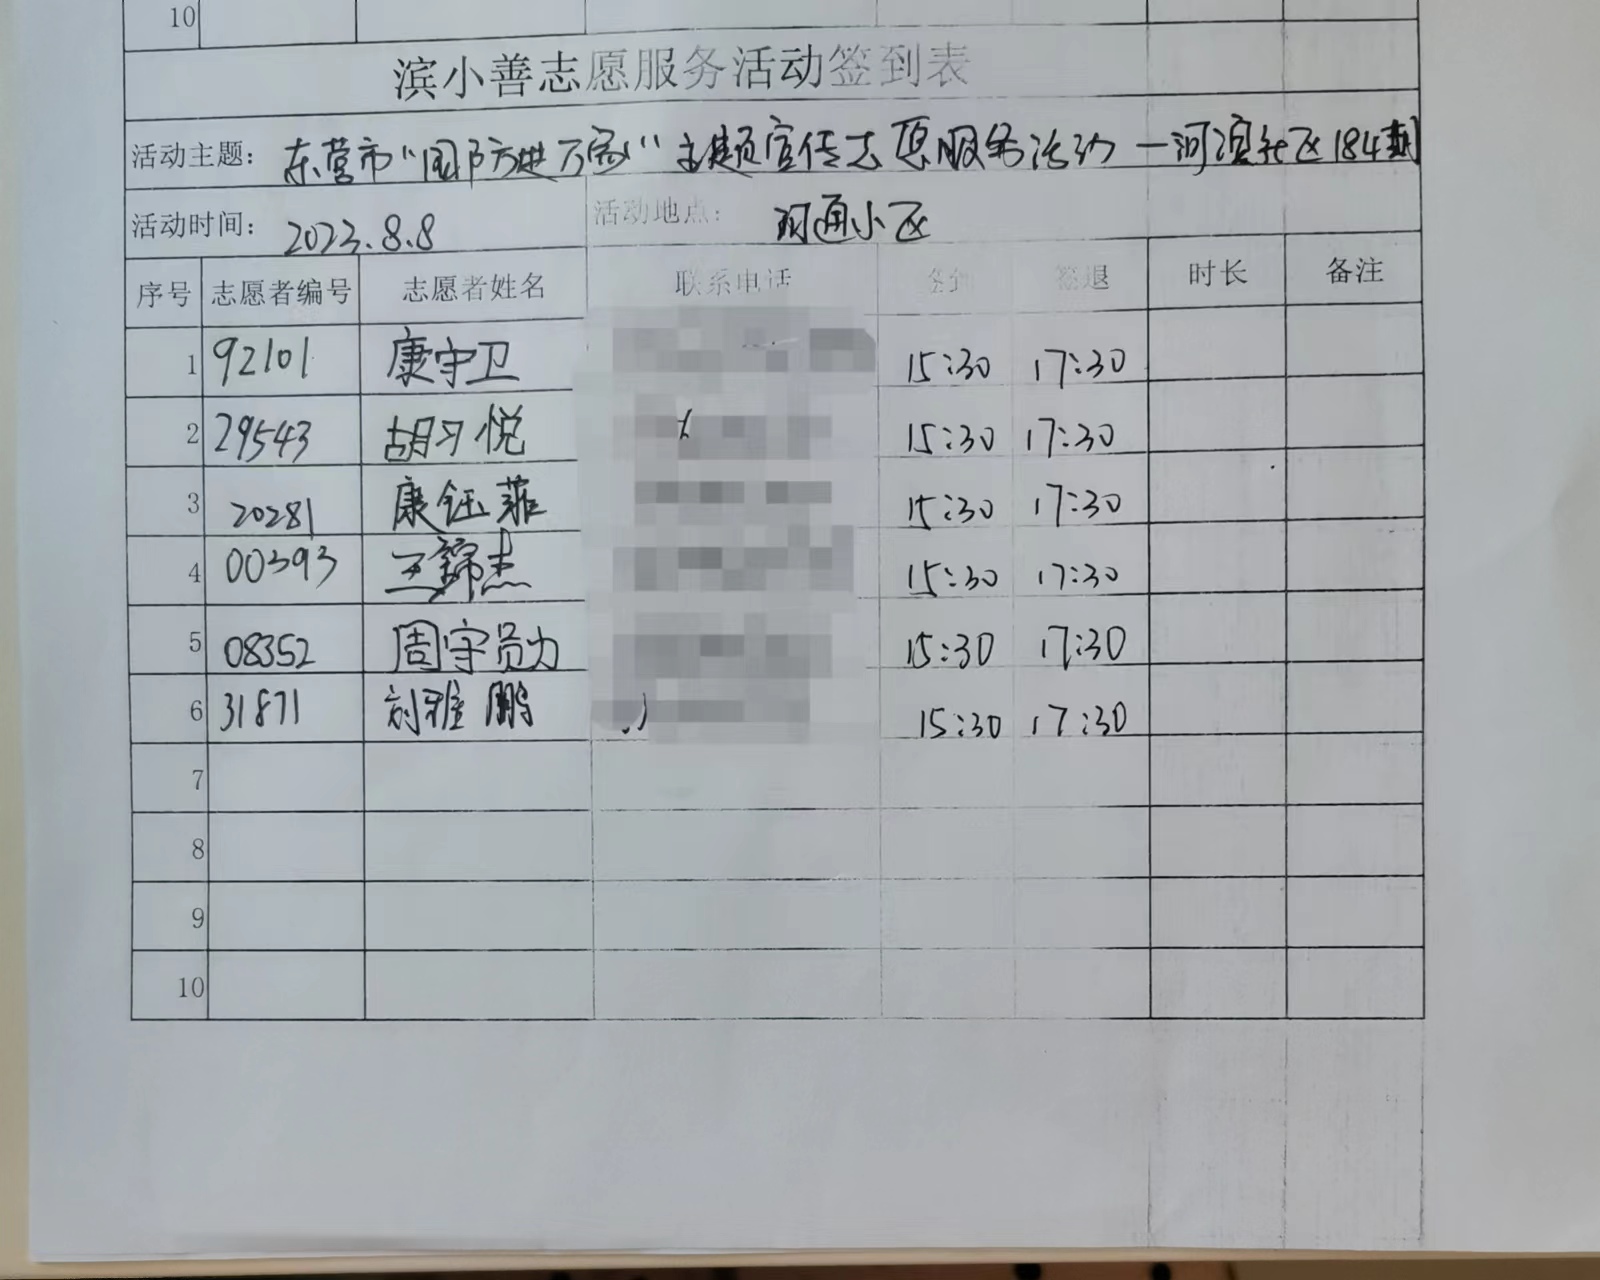 10
滨小善志愿服务活动签到表
活动主题: 东营市"国防进万家"主题宣传志愿服务活动—河滨社区184期
活动时间: 2023.8.8 活动地点: 河通小区
序号 志愿者编号 志愿者姓名 联系电话 签到 签退 时长 备注
1 92101 康守卫 15:30 17:30
2 29543 胡习悦 15:30 17:30
3 20281 康钰菲 15:30 17:30
4 00393 王錦杰 15:30 17:30
5 08352 周守勋 15:30 17:30
6 31871 刘雅鹏 15:30 17:30
7
8
9
10